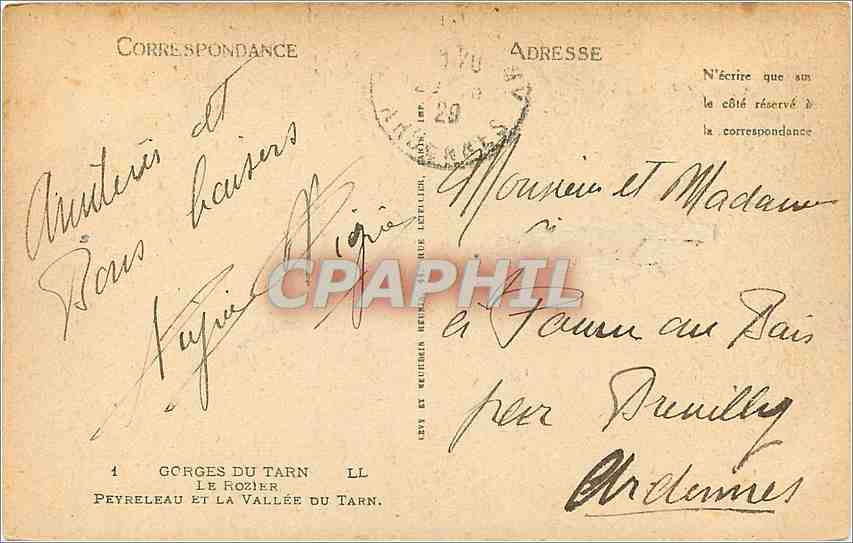 CORRESPONDANCE
ADRESSE
N'écrire que sur
le côté réservé à
la correspondance
29
ARDENNES
Amitiés et
Bons baisers
CPAPHIL
LEVY ET NEURDEIN RÉUNIS, 44, RUE LETELLIER, PARIS, IMP.
Monsieur et Madame
à
par Brevilly
Ardennes
1 GORGES DU TARN LL
LE ROZIER
PEYRELEAU ET LA VALLÉE DU TARN.